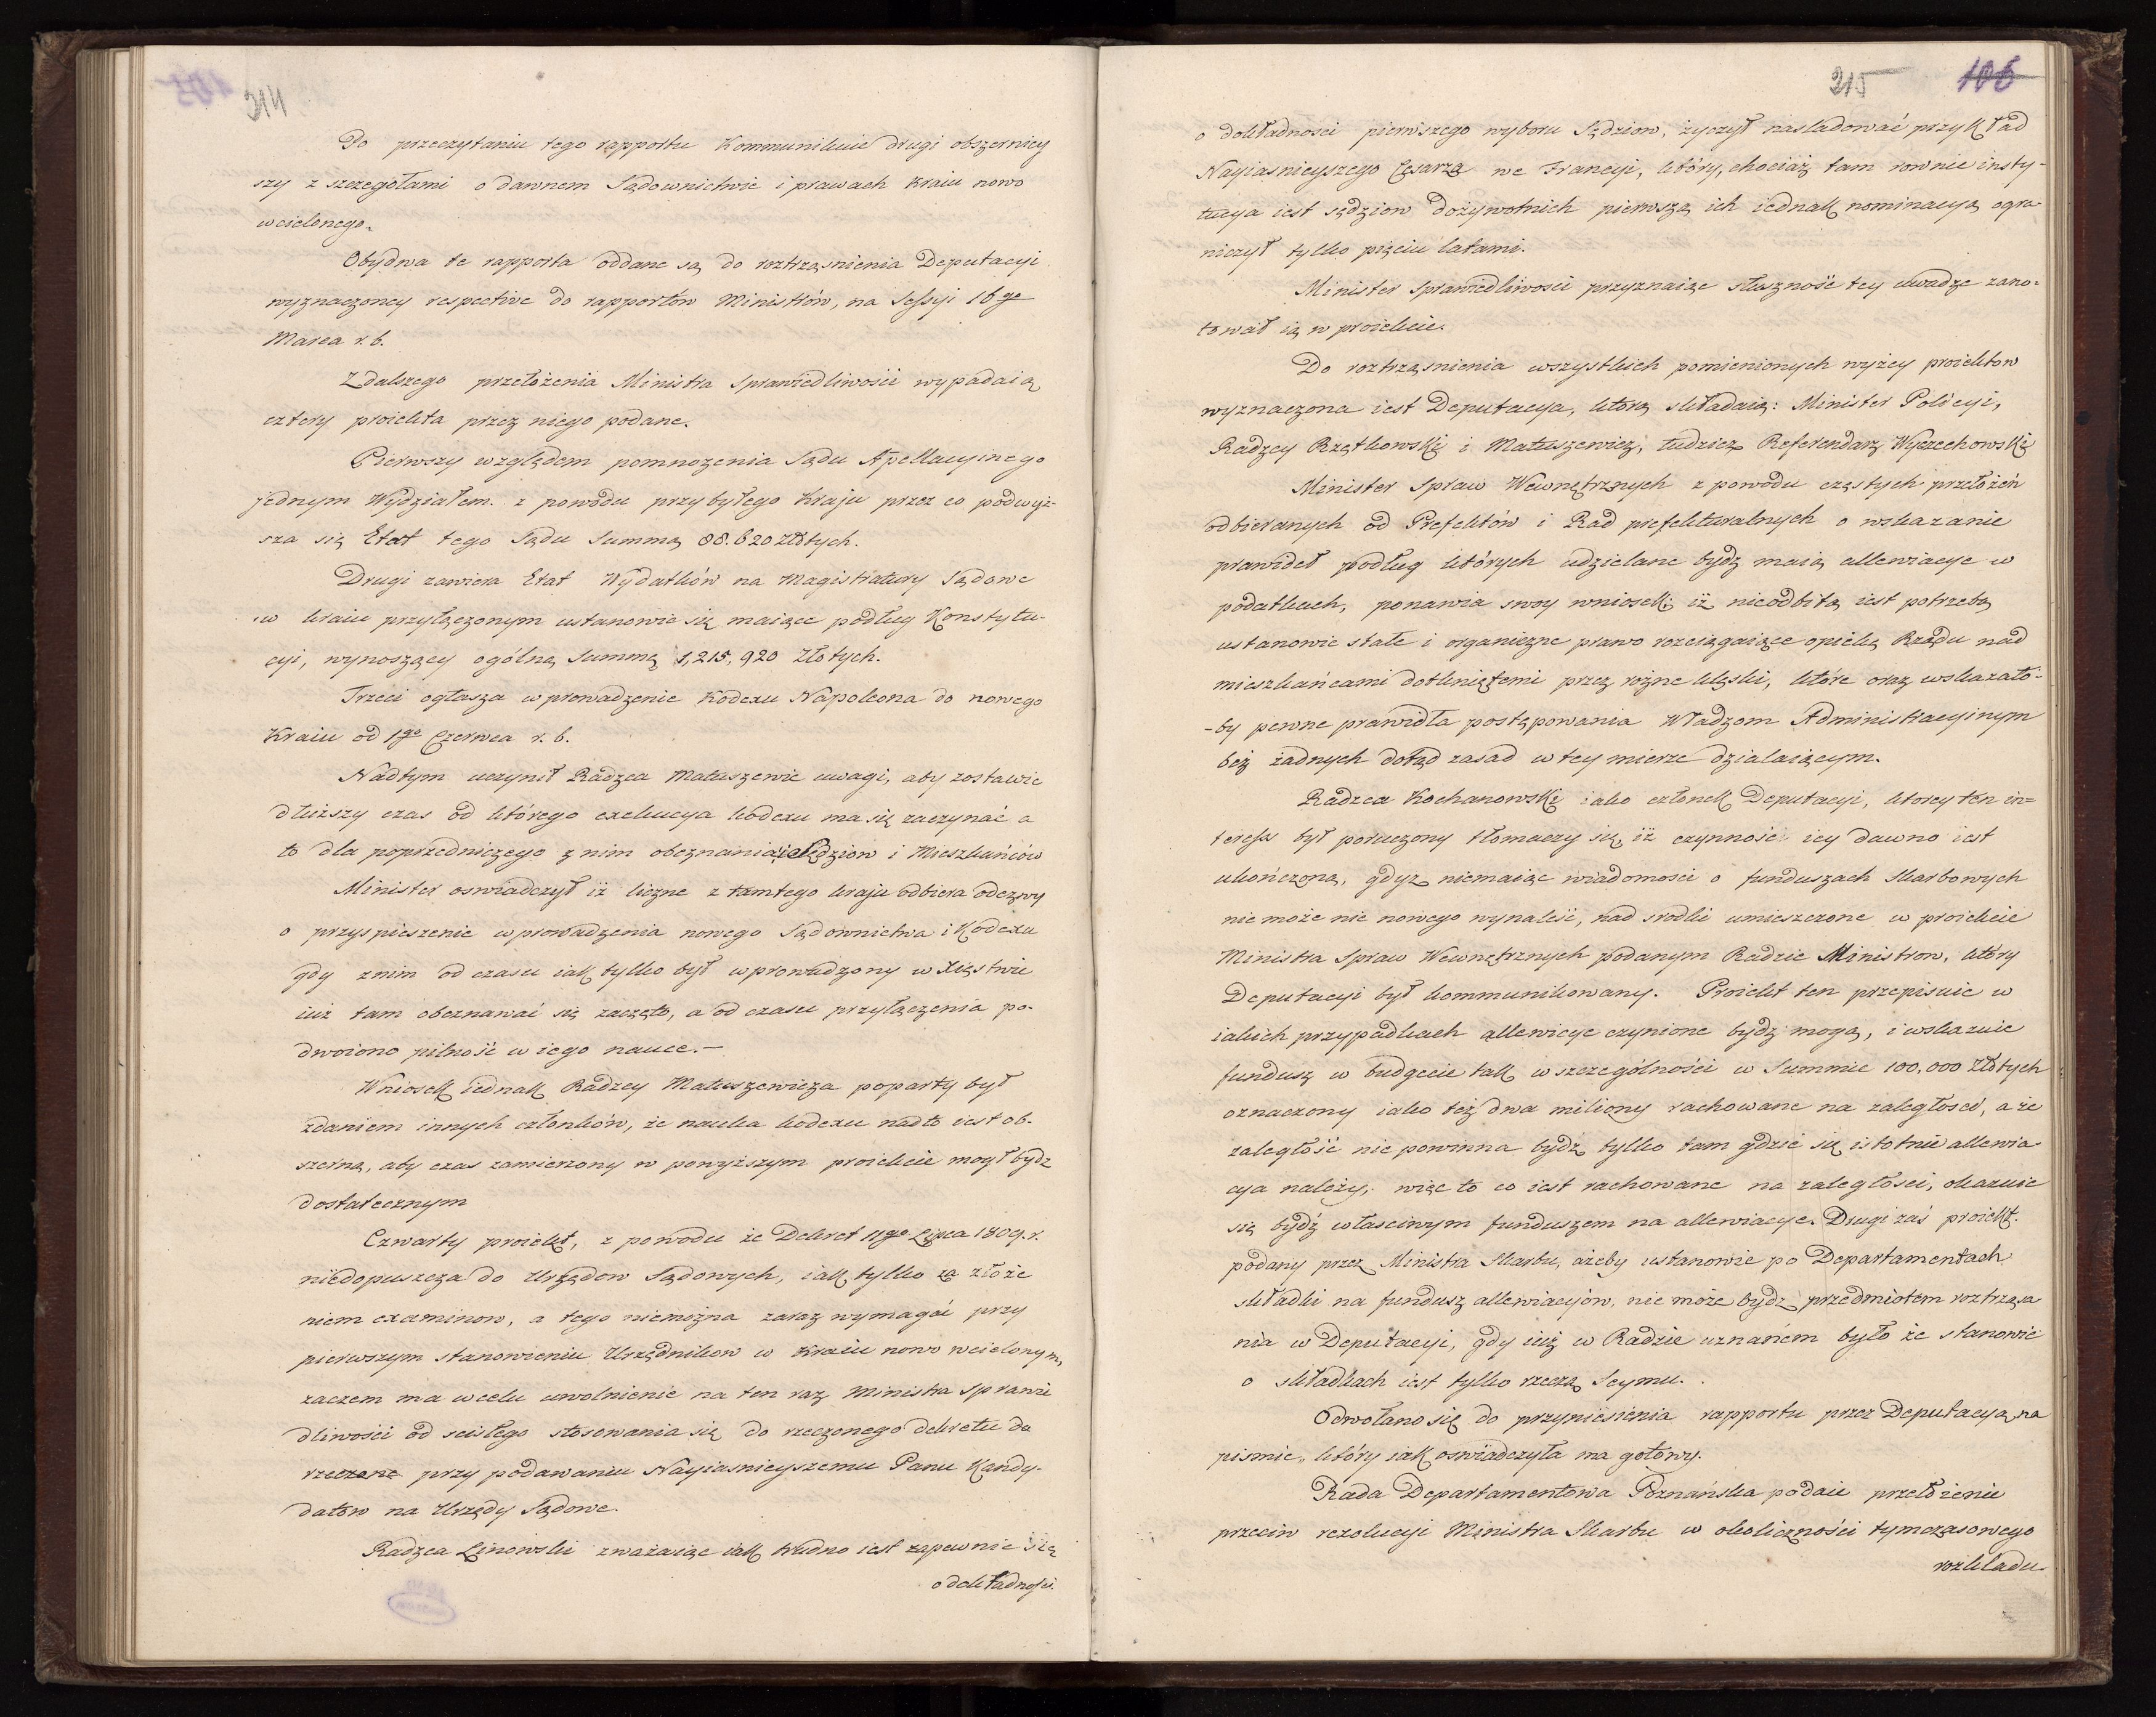 214
Po przeczytaniu tego rapportu Kommunikuie drugi obszerniey
szy z szczegołami o dawnem Sądownictwie i prawach kraiu nowo
wcielonego.
Obydwa te rapporta oddane są do roztrząsnienia Deputacyi
wyznaczoney respective do rapportów Ministrów, na Sessyi 16go
Marca r. b.
Z dalszego przełożenia Ministra Sprawiedliwości wypadaią
cztery proiekta przez niego podane.
Pierwszy względem pomnożenia Sądu Apellacyinego
jednym Wydziałem z powodu przybyłego Kraju przez co podwyż-
sza się Etat tego Sądu Summą 88.620 Złotych.
Drugi zawiera Etat Wydatków na Magistratury Sądowe
w kraiu przyłączonym ustanowić się maiące podług Konstytu-
cyi, wynoszący ogólną Summę 1,215,920 Złotych.
Trzeci ogłasza wprowadzenie Kodexu Napoleona do nowego
Kraiu od 1go Czerwca r. b.
Nadtym uczynił Radzca Matuszewic uwagi, aby zostawic
dłuższy czas od którego exekucya kodexu ma się zaczynać a
to dla poprzedniczego z nim obeznania się Sędziow i Mieszkańców
Minister oswiadczył iż liczne z tamtego kraju odbiera odezwy
o przyspieszenie wprowadzenia nowego Sądownictwa i Kodexu
gdy z nim od czasu iak tylko był wprowadzony w Xięstwie
iuż tam obeznawać się zaczęto, a od czasu przyłączenia po-
dwoiono pilność w iego nauce.—
Wniosek iednak Radzcy Matuszewicza poparty był
zdaniem innych członków, że nauka kodexu nadto iest ob-
szerną, aby czas zamierzony w powyższym proiekcie mogł bydz
dostatecznym
Czwarty proiekt, z powodu że Dekret 11go Lipca 1809. r.
niedopuszcza do Urzędow Sądowych, iak tylko za złoże
niem examinow, a tego niemożna zaraz wymagać przy
pierwszym stanowieniu Urzędnikow w Kraiu nowo wcielonym,
zaczem ma w celu uwolnienie na ten raz Ministra Sprawie
dliwości od scisłego stosowania się do rzeczonego dekretu do
rzeczone przy podawaniu Nayiasnieyszemu Panu Kandy-
datow na Urzędy Sądowe.
Radzca Linowski zważaiąc iak trudno iest zapewnic się
o dokładności
215 106
o dokładności pierwszego wyboru Sędziow, życzył nasladować przykład
Nayiasnieyszego Cesarza we Francyi, który, chociaż tam rownie insty-
tucya iest sędziow dożywotnich pierwszą ich iednak nominacyą ogra-
niczył tylko pięciu latami.
Minister Sprawiedliwosci przyznaiąc słuszność tey uwadze zano-
tował ią w proiekcie.
Do roztrząsnienia wszystkich pomienionych wyżey proiektow
wyznaczona iest Deputacya, którą składaią: Minister Policyi,
Radzcy Rzętkowski i Matuszewicz, tudzież Referendarz Wyczechowski
Minister Spraw Wewnętrznych z powodu częstych przełożeń
odbieranych od Prefektów i Rad prefekturalnych o wskazanie
prawideł podług których udzielane bydź maią allewiacye w
podatkach, ponawia swoy wniosek iż nieodbitą iest potrzebą
ustanowic stałe i organiczne prawo rozciągaiące opiekę Rządu nad
mieszkańcami dotkniętemi przez rożne klęski, które oraz wskazało-
-by pewne prawidła postępowania Władzom Administracyinym
bez żadnych dotąd zasad w tey mierze działaiącym.
Radzca Kochanowski iako członek Deputacyi, ktorey ten in-
teress był poruczony tłomaczy się, iż czynność iey dawno iest
ukończoną, gdyz niemaiąc wiadomosci o funduszach Skarbowych
nie może nic nowego wynaleść, nad srodki umieszczone w proiekcie
Ministra Spraw Wewnętrznych podanym Radzie Ministrow, który
Deputacyi był kommunikowany. Proiekt ten przepisuie w
iakich przypadkach allewicye czynione bydź mogą, i wskazuie
fundusz w budgecie tak w szczególności w Summie 100,000 Złotych
oznaczony iako też dwa miliony rachowane na zaległosci, a że
zaległość nie powinna bydź tylko tam gdzie się istotnie allewia-
cya należy, więc to co iest rachowane na zaległosci, okazuie
się bydź własciwym funduszem na allewiacye. Drugi zaś proiekt
podany przez Ministra Skarbu, ażeby ustanowic po Departamentach
składki na fundusz allewiacyów, nie może bydz przedmiotem roztrząsa
nia w Deputacyi, gdy iuż w Radzie uznanem było że stanowic
o składkach iest tylko rzeczą Seymu.
Odwołano się do przyniesienia rapportu przez Deputacyą na
pismie, który iak oswiadczyła ma gotowy.
Rada Departamentowa Poznańska podaie przełożenie
przeciw rezolucyi Ministra Skarbu w okoliczności tymczasowego
rozkładu.